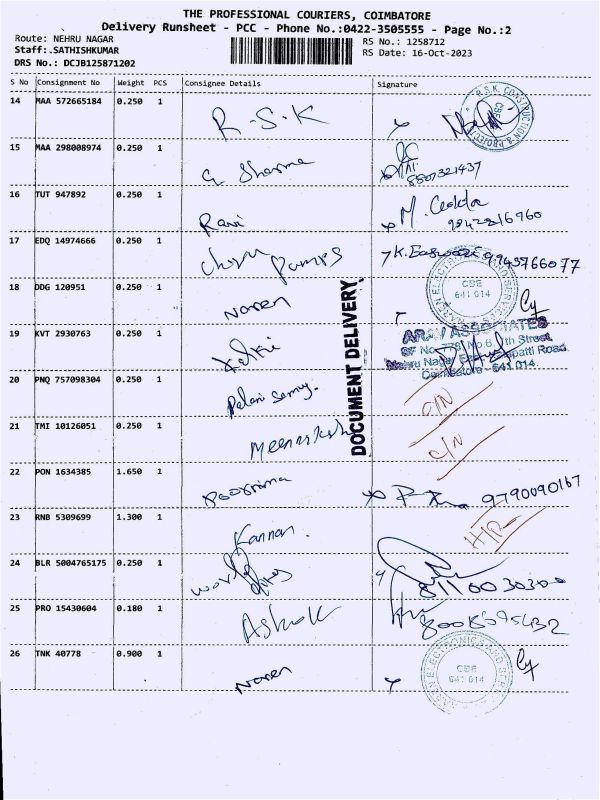 THE PROFESSIONAL COURIERS, COIMBATORE
Delivery Runsheet - PCC - Phone No.:0422-3505555 - Page No.:2
Route: NEHRU NAGAR
RS No.: 1258712
Staff: SATHISHKUMAR
RS Date: 16-Oct-2023
DRS No.: DCJB125871202
S No Consignment No Weight PCS Consignee Details Signature
14 MAA 572665184 0.250 1 R.S.K
15 MAA 298008974 0.250 1 G Sharma 8807321437
16 TUT 947892 0.250 1 Ravi M.
17 EDQ 14974666 0.250 1 Pumps
18 DDG 120951 0.250 1 Naren CBE 641 014
19 KVT 2930763 0.250 1 Kalki ARAV ASSOCIATES
Coimbatore - 641 014.
20 PNQ 757098304 0.250 1 Palani Samy. C/N
21 TMI 10126051 0.250 1 C/N
DOCUMENT DELIVERY.
22 PON 1634385 1.650 1 Poornima 9790090167
23 RNB 5309699 1.300 1 Kannan.
24 BLR 5004765175 0.250 1
25 PRO 15430604 0.180 1 Ashok
26 TNK 40778 0.900 1 Naren CBE 641 014